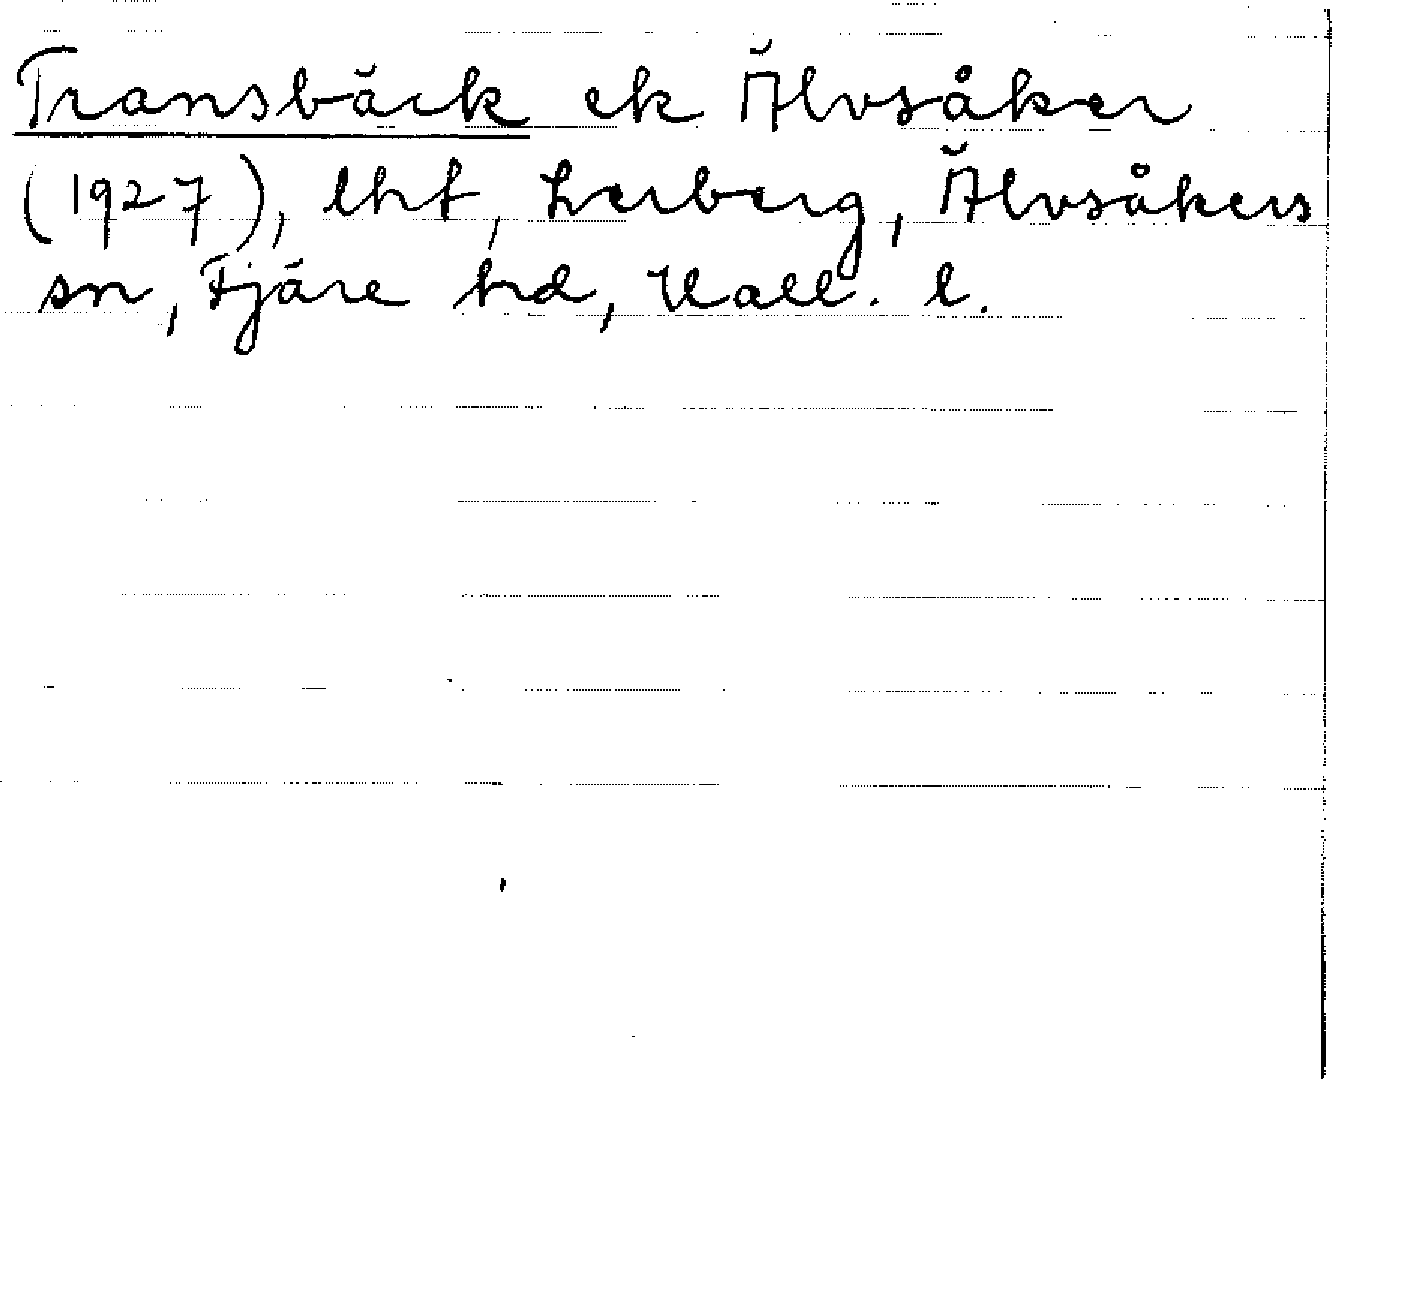 Transbäck ek Älvsåker
(1927), lht, Lerberg, Älvsåkers
sn, Fjäre hd, Hall. l.